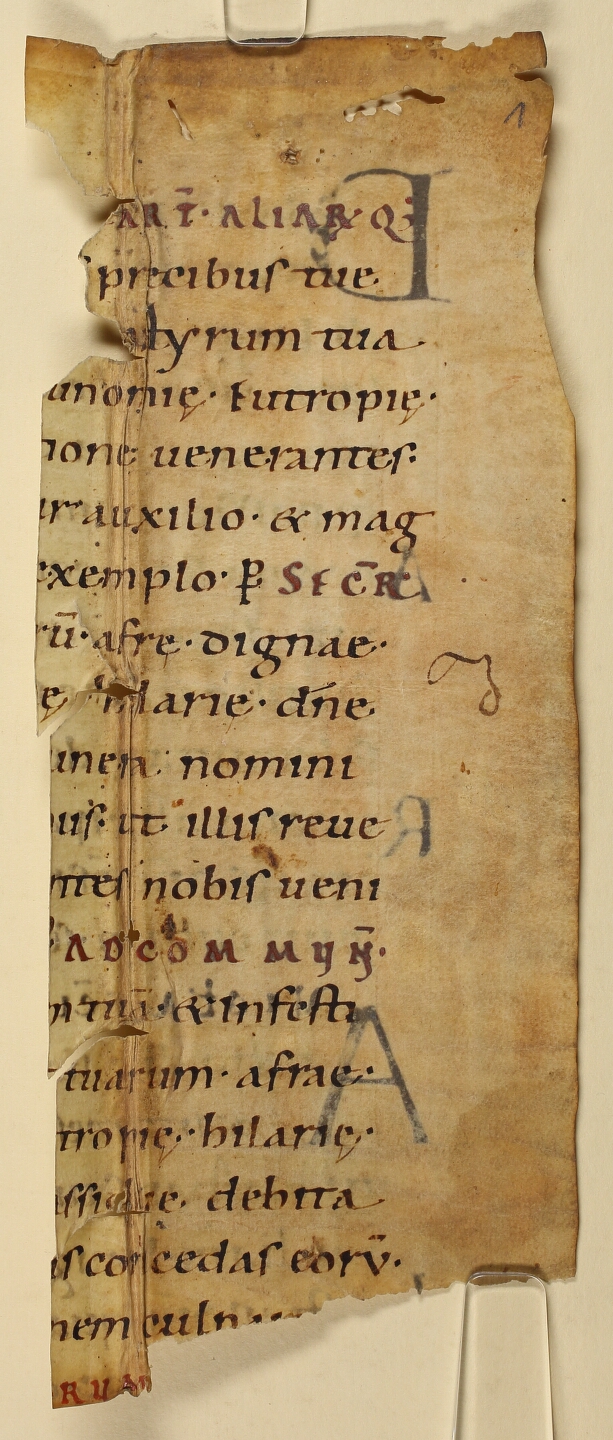 1
ART̄· ALIAR· Q;
precibus tue
tyrum tua
unomię· Eutropię·
ione uenerantes·
ur auxilio· & mag
exemplo· P̄ SECR̄
rū· afre· dignae·
e hilarie· dn̄e
munera nomini
bus· ut illis reue
ntes nobis ueni
AD COMMUN̄·
m tuā· & infesti
tuarum· afrae·
tropię· hilarię·
assidue debita
is concedas eorū·
nem
RUM